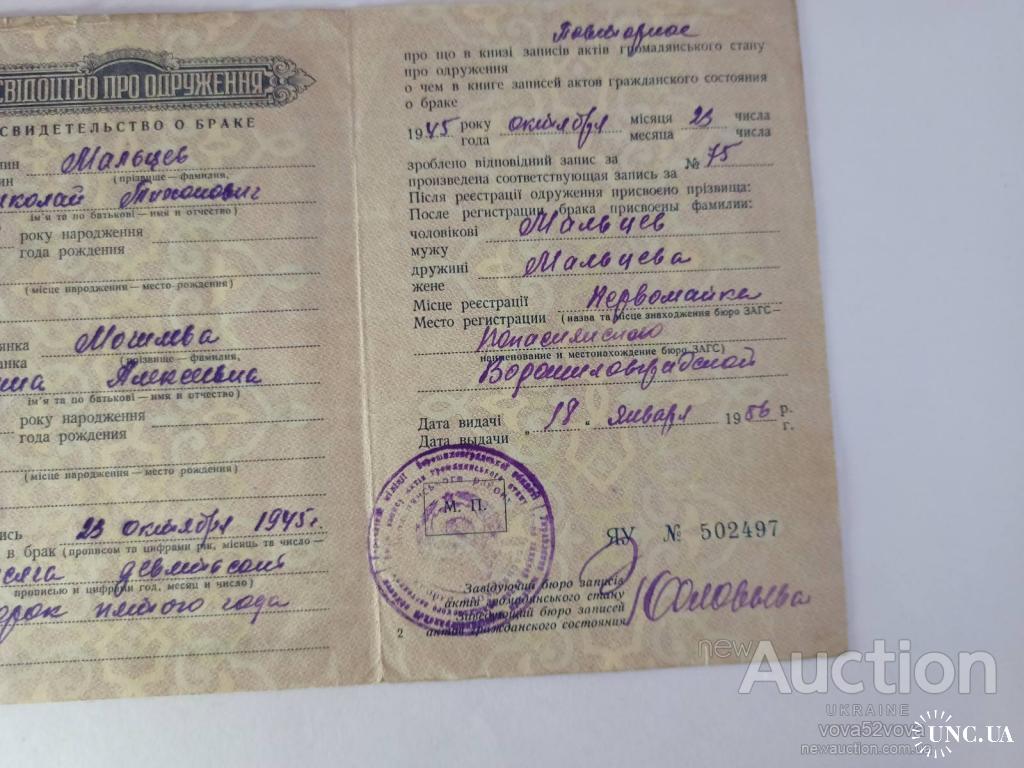 СВІДОЦТВО ПРО ОДРУЖЕННЯ
СВИДЕТЕЛЬСТВО О БРАКЕ
нин Мальцев
нин (прізвище—фамилия,
иколай Тихонович
ім'я та по батькові—имя и отчество)
року народження
года рождения
(місце народження—место рождения)
янка
анка (прізвище—фамилия,
Алексеевна
ім'я та по батькові—имя и отчество)
року народження
года рождения
(місце народження—место рождения)
ись 23 октября 1945 г.
в брак (прописом та цифрами рік, місяць та число—
сяча девятьсот
прописью и цифрами год, месяц и число)
орок пятого года
Повторное
про що в книзі записів актів громадянського стану
про одруження
о чем в книге записей актов гражданского состояния
о браке
1945 року октября місяця 23 числа
года месяца числа
зроблено відповідний запис за № 75
произведена соответствующая запись за
Після реєстрації одруження присвоєно прізвища:
После регистрации брака присвоены фамилии:
чоловікові Мальцев
мужу
дружині Мальцева
жене
Місце реєстрації Первомайка
Место регистрации (назва та місце знаходження бюро ЗАГС—
Попаснянского
наименование и местонахождение бюро ЗАГС)
Ворошиловградской
Дата видачі „18“ января 1956 р.
Дата выдачи г.
М. П.
ЯУ № 502497
Завідуючий бюро записів
актів громадянського стану
Заведующий бюро записей
актов гражданского состояния
Соловьева
2
newAuction
UKRAINE
vova52vova
newauction.com.ua
UNC.UA